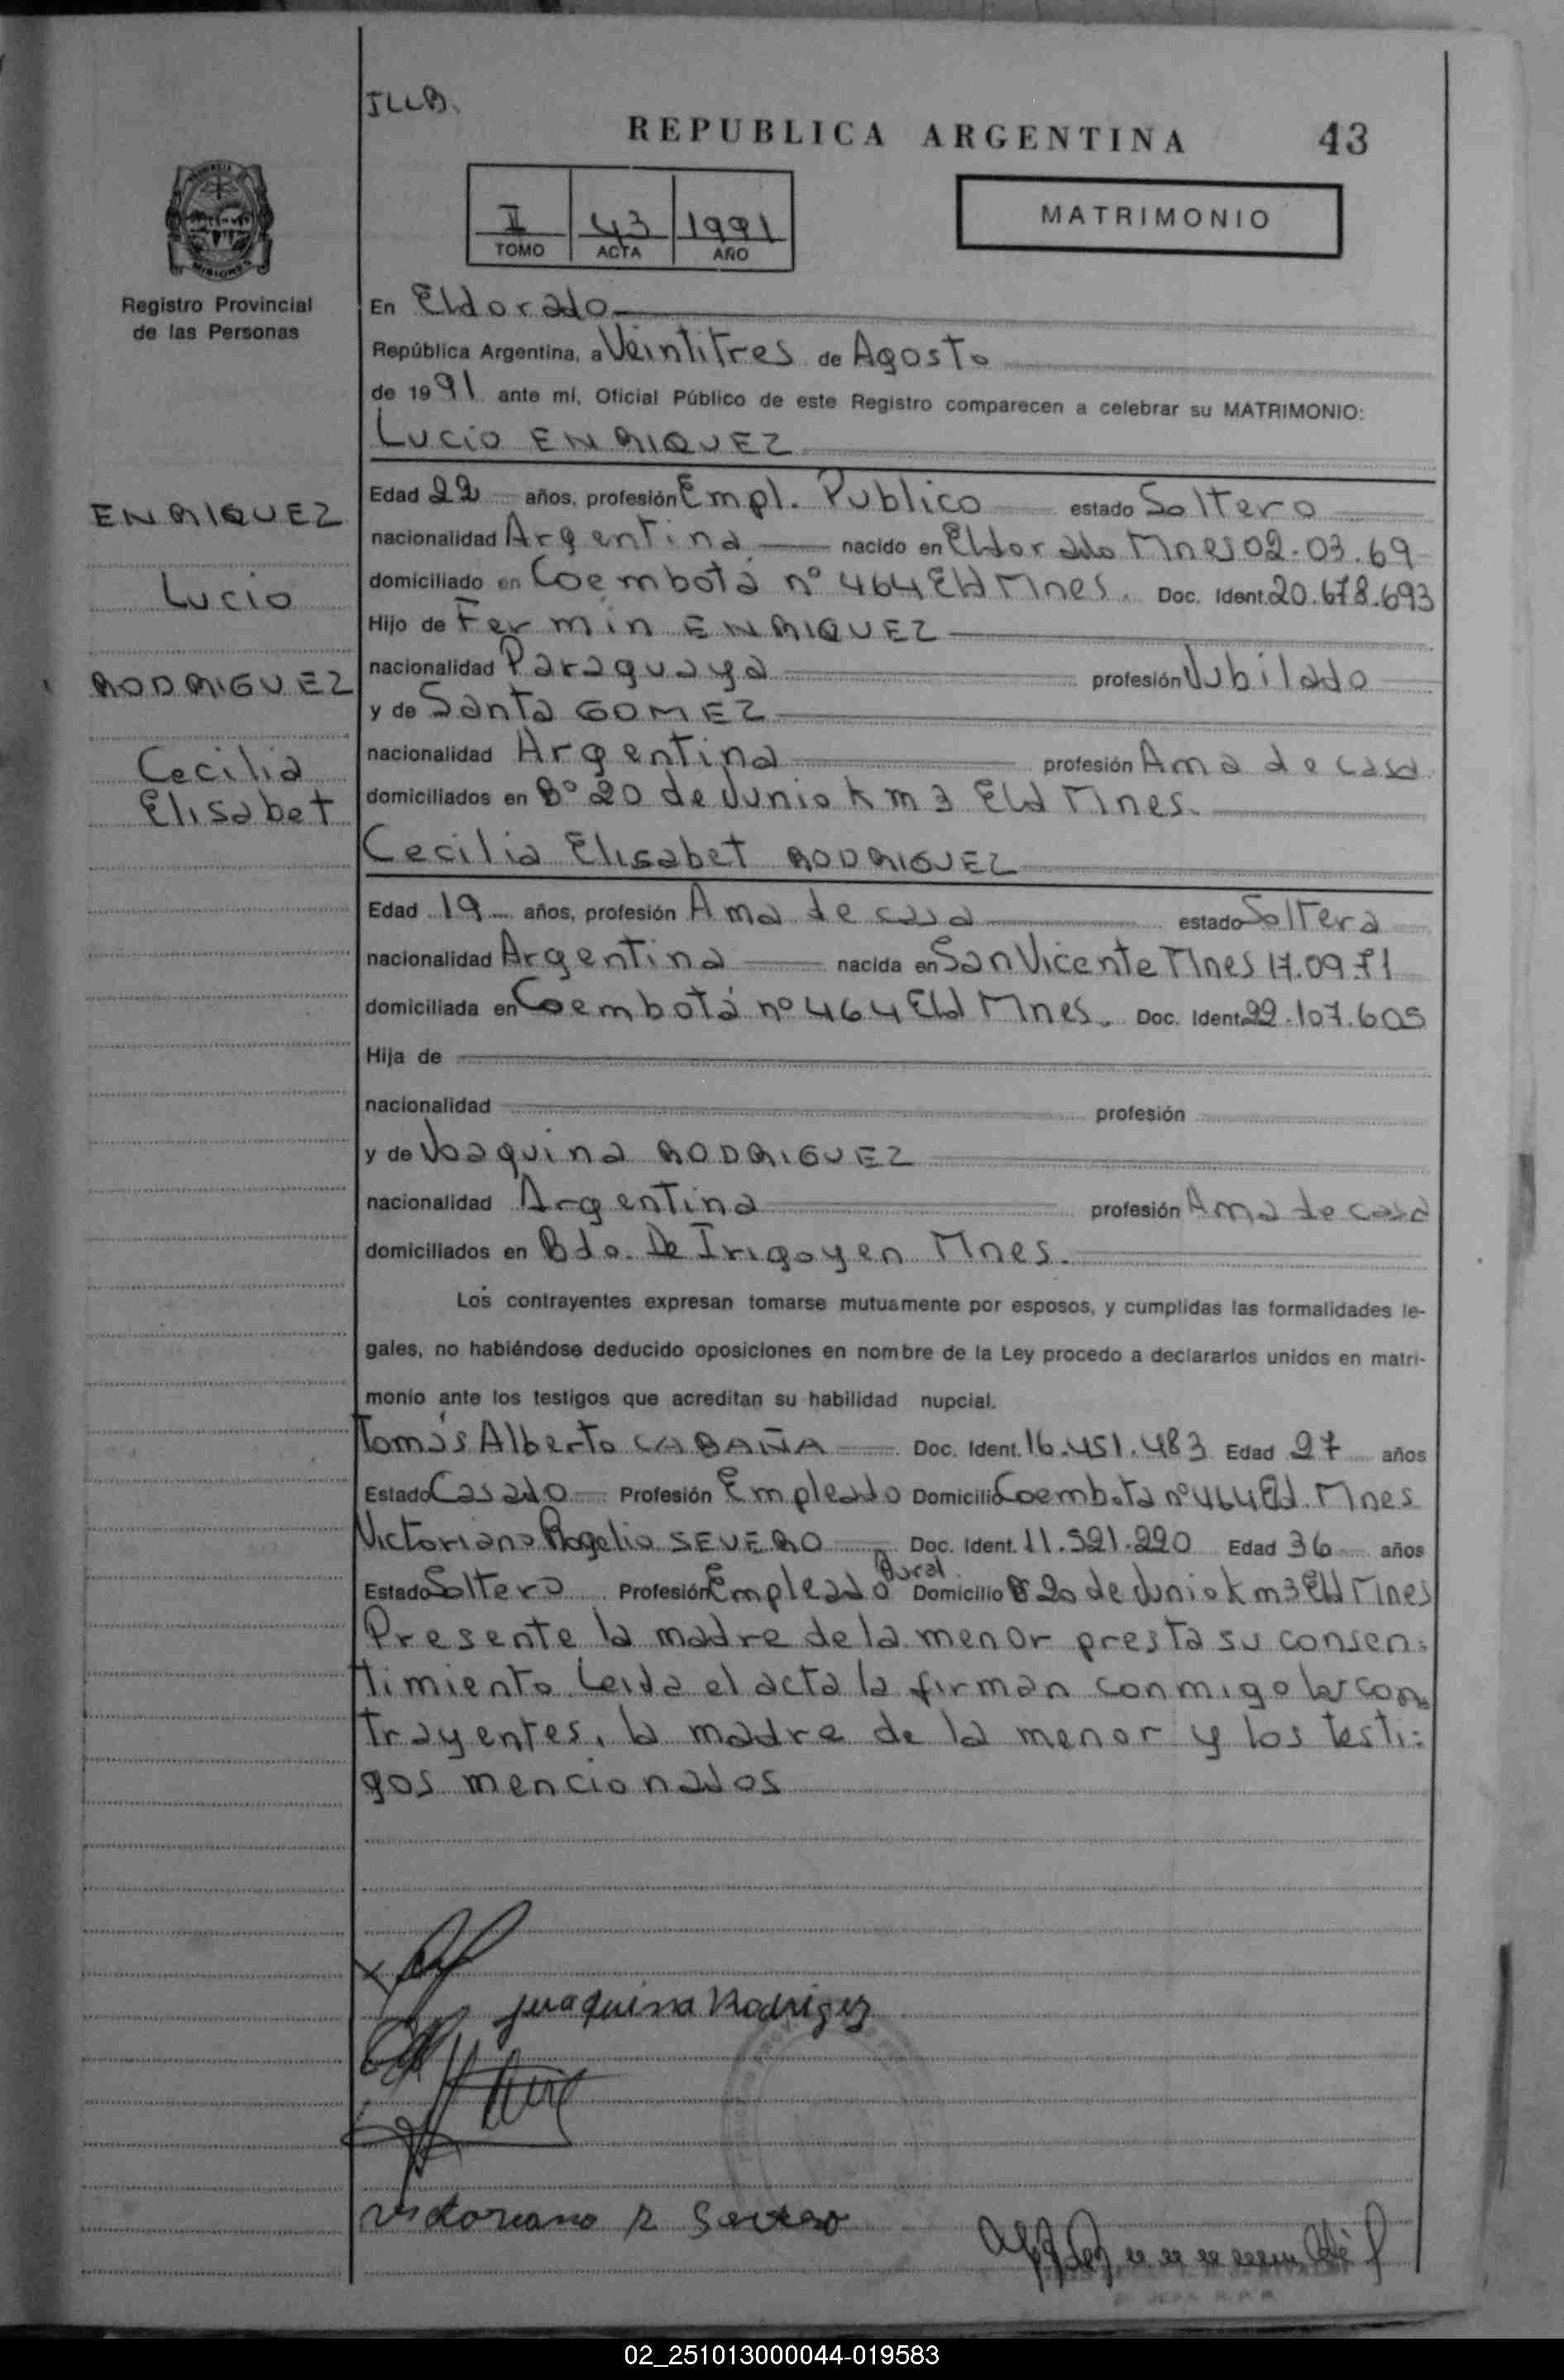 ILLB.
REPUBLICA ARGENTINA 43
II TOMO 43 ACTA 1991 AÑO
MATRIMONIO
MISIONES
Registro Provincial
de las Personas
En Eldorado
República Argentina, a Veintitres de Agosto
de 1991 ante mí, Oficial Público de este Registro comparecen a celebrar su MATRIMONIO:
Lucio ENRIQUEZ
ENRIQUEZ
Lucio
RODRIGUEZ
Cecilia
Elisabet
Edad 22 años, profesión Empl. Publico estado Soltero
nacionalidad Argentina nacido en Eldorado Mnes 02.03.69
domiciliado en Coembotá nº 464 Eld Mnes. Doc. Ident. 20.678.693
Hijo de Fermin ENRIQUEZ
nacionalidad Paraguaya profesión Jubilado
y de Santa GOMEZ
nacionalidad Argentina profesión Ama de casa
domiciliados en Bº 20 de Junio km 3 Eld Mnes.
Cecilia Elisabet RODRIGUEZ
Edad 19 años, profesión Ama de casa estado Soltera
nacionalidad Argentina nacida en San Vicente Mnes 17.09.71
domiciliada en Coembotá nº 464 Eld Mnes. Doc. Ident. 22.107.605
Hija de
nacionalidad profesión
y de Joaquina RODRIGUEZ
nacionalidad Argentina profesión Ama de casa
domiciliados en Bdo. De Irigoyen Mnes.
Los contrayentes expresan tomarse mutuamente por esposos, y cumplidas las formalidades le-
gales, no habiéndose deducido oposiciones en nombre de la Ley procedo a declararlos unidos en matri-
monio ante los testigos que acreditan su habilidad nupcial.
Tomás Alberto CABAÑA Doc. Ident. 16.451.483 Edad 27 años
Estado Casado Profesión Empleado Domicilio Coembota nº 464 Eld. Mnes
Victoriano Rogelio SEVERO Doc. Ident. 11.521.220 Edad 36 años
Estado Soltero Profesión Empleado Rural Domicilio B 20 de Junio km 3 Eld Mnes
Presente la madre de la menor presta su consen=
timiento. Leida el acta la firman conmigo los con=
trayentes, la madre de la menor y los testi=
gos mencionados
Juaquina Rodrigez
Victoriano R Severo
02_251013000044-019583